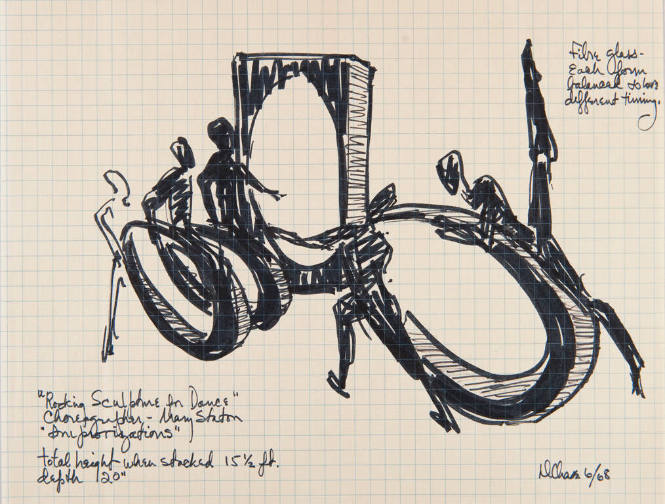 Fibre glass-
Each form
balanced to have
different timing.
"Rocking Sculpture for Dance"
Choreographer - Mary Staton
"Improvizations"
total height when stacked 15 ½ ft.
depth 120"
DChase 6/68